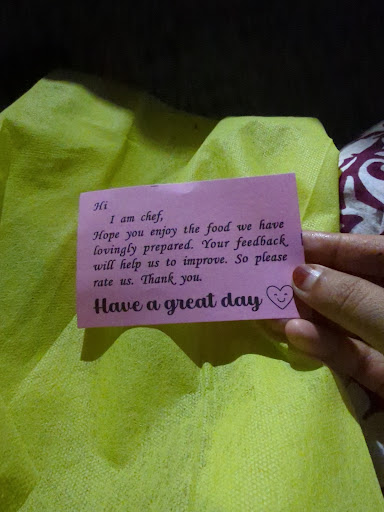 Hi
I am chef,
Hope you enjoy the food we have
lovingly prepared. Your feedback
will help us to improve. So please
rate us. Thank you.
Have a great day